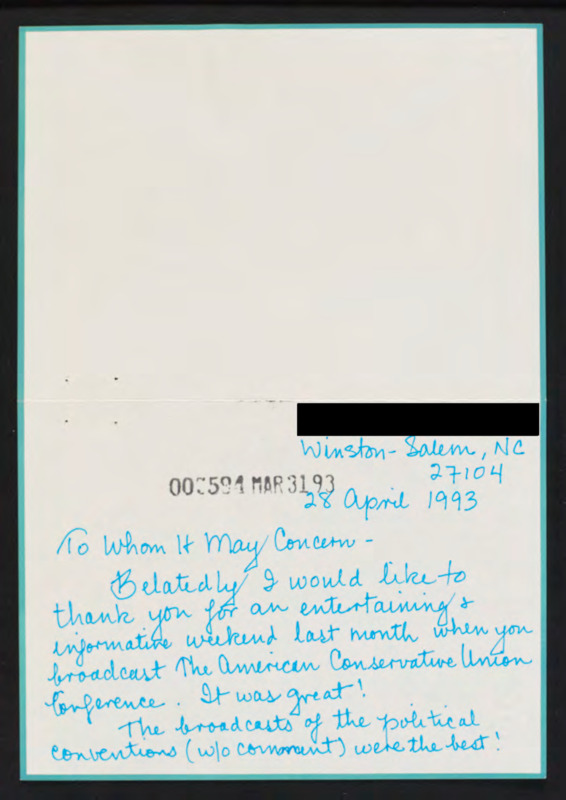 Winston-Salem, NC
27104
MAR 31 93
28 April 1993
To Whom It May Concern -
Belatedly I would like to
thank you for an entertaining &
informative weekend last month when you
broadcast The American Conservative Union
Conference. It was great!
The broadcasts of the political
conventions (w/o comment) were the best!